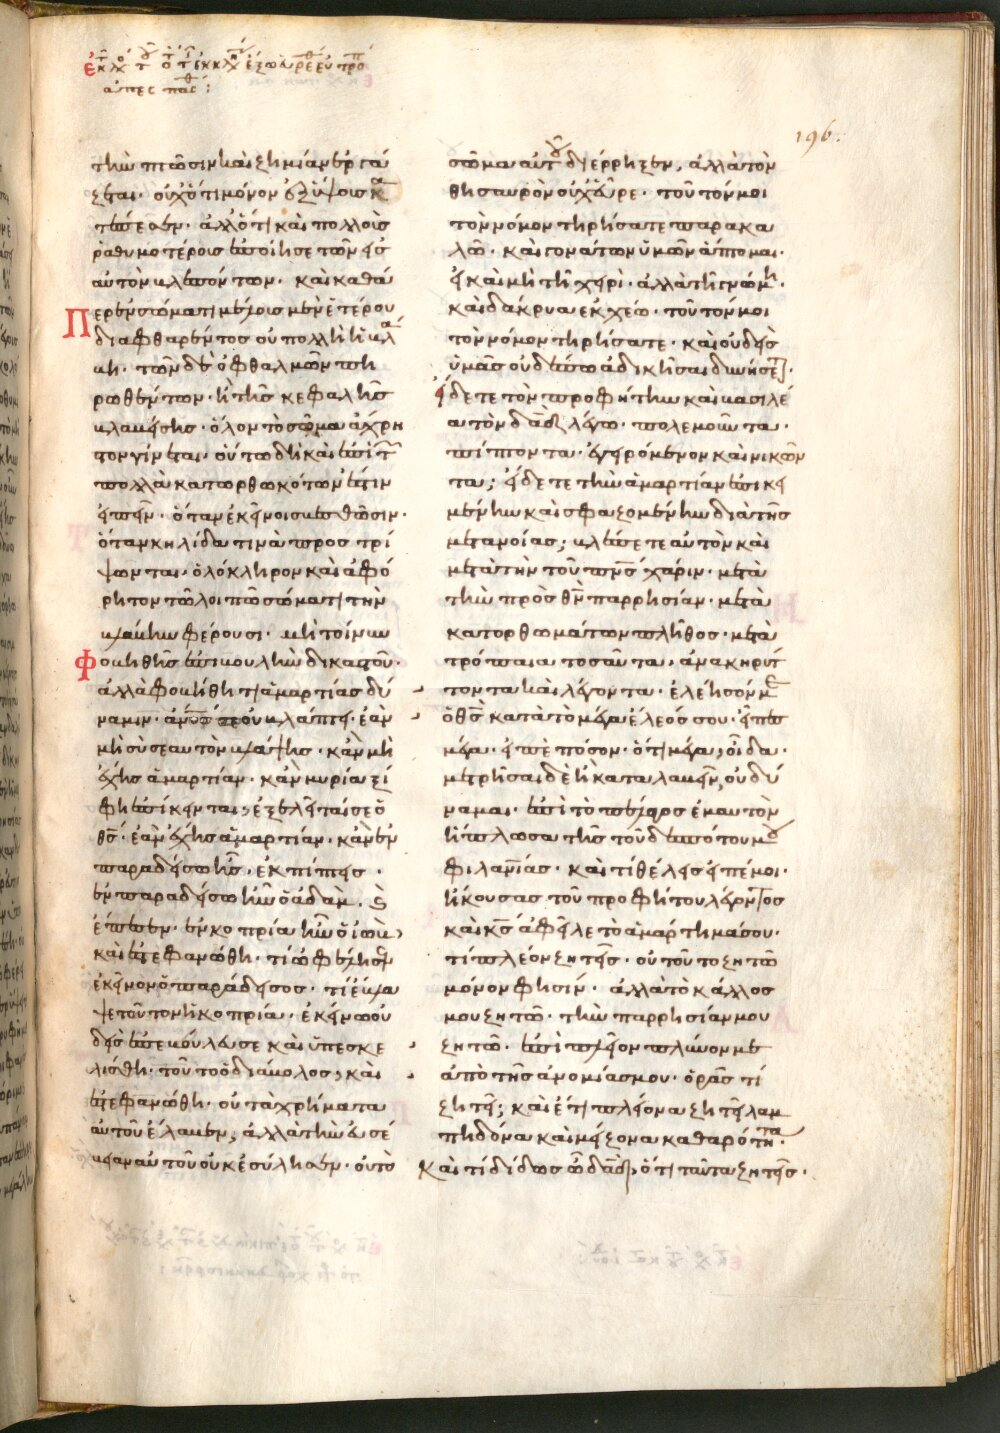 196.
τὴν πτῶσιν καὶ ζημίαν ἐργά
ζεται· οὐχ ὅτι μόνον
ἀλλ' ὅτι καὶ πολλοὺς
ῥαθυμοτέρους ἐποίησε τῶν εἰς
αὐτὸν βλεπόντων· καὶ καθά
περ ἐν σώματι μέλους μὲν ἑτέρου
διαφθαρέντος οὐ πολλὴ ἡ βλά
βη· τῶν δὲ ὀφθαλμῶν πη
ρωθέντων· ἢ τῆς κεφαλῆς
βλαβείσης· ὅλον τὸ σῶμα ἄχρη
στον γίνεται· οὕτω δὴ καὶ ἐπὶ τ
πολλὰ κατωρθωκότων ἐστιν
εἰπεῖν· ὅταν ἐκεῖνοι σβεσθῶσιν·
ὅταν κηλίδα τινὰ προστρί
ψωνται· ὁλόκληρον καὶ ἀφό
ρητον τῶ λοιπῶ σώματι τὴν
βλάβην φέρουσι· μὴ τοίνυν
φοβηθῆς ἐπιβουλὴν δικαστοῦ·
ἀλλὰ φοβήθητι ἁμαρτίας δύ
ναμιν· ἄνος σε οὐ βλάπτει· ἐὰν
μὴ σὺ σεαυτὸν βλάψης· κἂν μὴ
ἔχης ἁμαρτίαν· κἂν μυρία ξί
φη ἐπίκενται, ἐξελεῖταί σε ὁ
θς· ἐὰν ἔχης ἁμαρτίαν· κἂν ἐν
παραδείσω ἦς, ἐκπίπτεις·
ἐν παραδείσω ἦν ὁ ἀδὰμ, καὶ
ἔπεσεν· ἐν κοπρία ἦν ὁ ἰὼβ,
καὶ ἐστεφανώθη· τί ὠφέλησεν
ἐκεῖνον ὁ παράδεισος· τί ἔβλα
ψε τοῦτον ἡ κοπρία· ἐκείνω οὐ
δεὶς ἐπεβούλευσε καὶ ὑπεσκε
λίσθη· τούτω ὁ διάβολος, καὶ
ἐστεφανώθη· οὐ τὰ χρήματα
αὐτοῦ ἔλαβεν, ἀλλὰ τὴν εὐσέ
βειαν αὐτοῦ οὐκ ἐσύλησεν· οὐ τὸ
σῶμα αὐτοῦ διέρρηξεν, ἀλλὰ τὸν
θησαυρὸν οὐχ εὗρε· τοῦτόν μοι
τὸν νόμον τηρήσατε παρακα
λῶ· καὶ γονάτων ὑμῶν ἅπτομαι·
εἰ καὶ μὴ τῆ χειρὶ· ἀλλὰ τῆ γνώμη·
καὶ δάκρυα ἐκχέω· τοῦτόν μοι
τὸν νόμον τηρήσατε· καὶ οὐδεὶς
ὑμᾶς οὐδέπω ἀδικῆσαι δυνήσεται·
εἴδετε τὸν προφήτην καὶ βασιλέ
α τὸν δαδ λέγω· πολεμοῦντα·
πίπτοντα· ἐγειρόμενον καὶ νικῶν
τα; εἴδετε τὴν ἁμαρτίαν ἐπικει
μένην καὶ σφαζομένην διὰ τῆς
μετανοίας; βλέπετε αὐτὸν καὶ
μετὰ τὴν τοῦ πνς χάριν· μετὰ
τὴν πρὸς θν παρρησίαν· μετὰ
κατορθωμάτων πλῆθος· μετὰ
τρόπαια τοσαῦτα, ἀνακηρύτ
τοντα καὶ λέγοντα· ἐλέησόν με
ὁ θς κατὰ τὸ μέγα ἔλεός σου· εἰπὲ
μέγα· εἰπὲ πόσον· ὅτι μέγα, οἶδα·
μετρῆσαι δὲ ἢ καταλαβεῖν, οὐ δύ
ναμαι· ἐπὶ τὸ πέλαγος ἐμαυτὸν
ἥπλωσα τῆς τοῦ δεσπότου μου
φιλανίας· καὶ τί θέλεις εἰπέ μοι·
ἤκουσας τοῦ προφήτου λέγοντος
καὶ κς ἀφεῖλε τὸ ἁμάρτημά σου·
τί πλέον ζητεῖς· οὐ τοῦτο ζητῶ
μόνον φησίν· ἀλλὰ τὸ κάλλος
μου ζητῶ· τὴν παρρησίαν μου
ζητῶ· ἐπὶ πλεῖον πλῦνόν με
ἀπὸ τῆς ἀνομίας μου· ὁρᾶς τί
ζητεῖ; καὶ ἔτι πλείονα ζητεῖ λαμ
πηδόνα καὶ μείζονα καθαρότητα·
καὶ τί δίδως ὦ δαδ, ὅτι ταῦτα ζητεῖς·